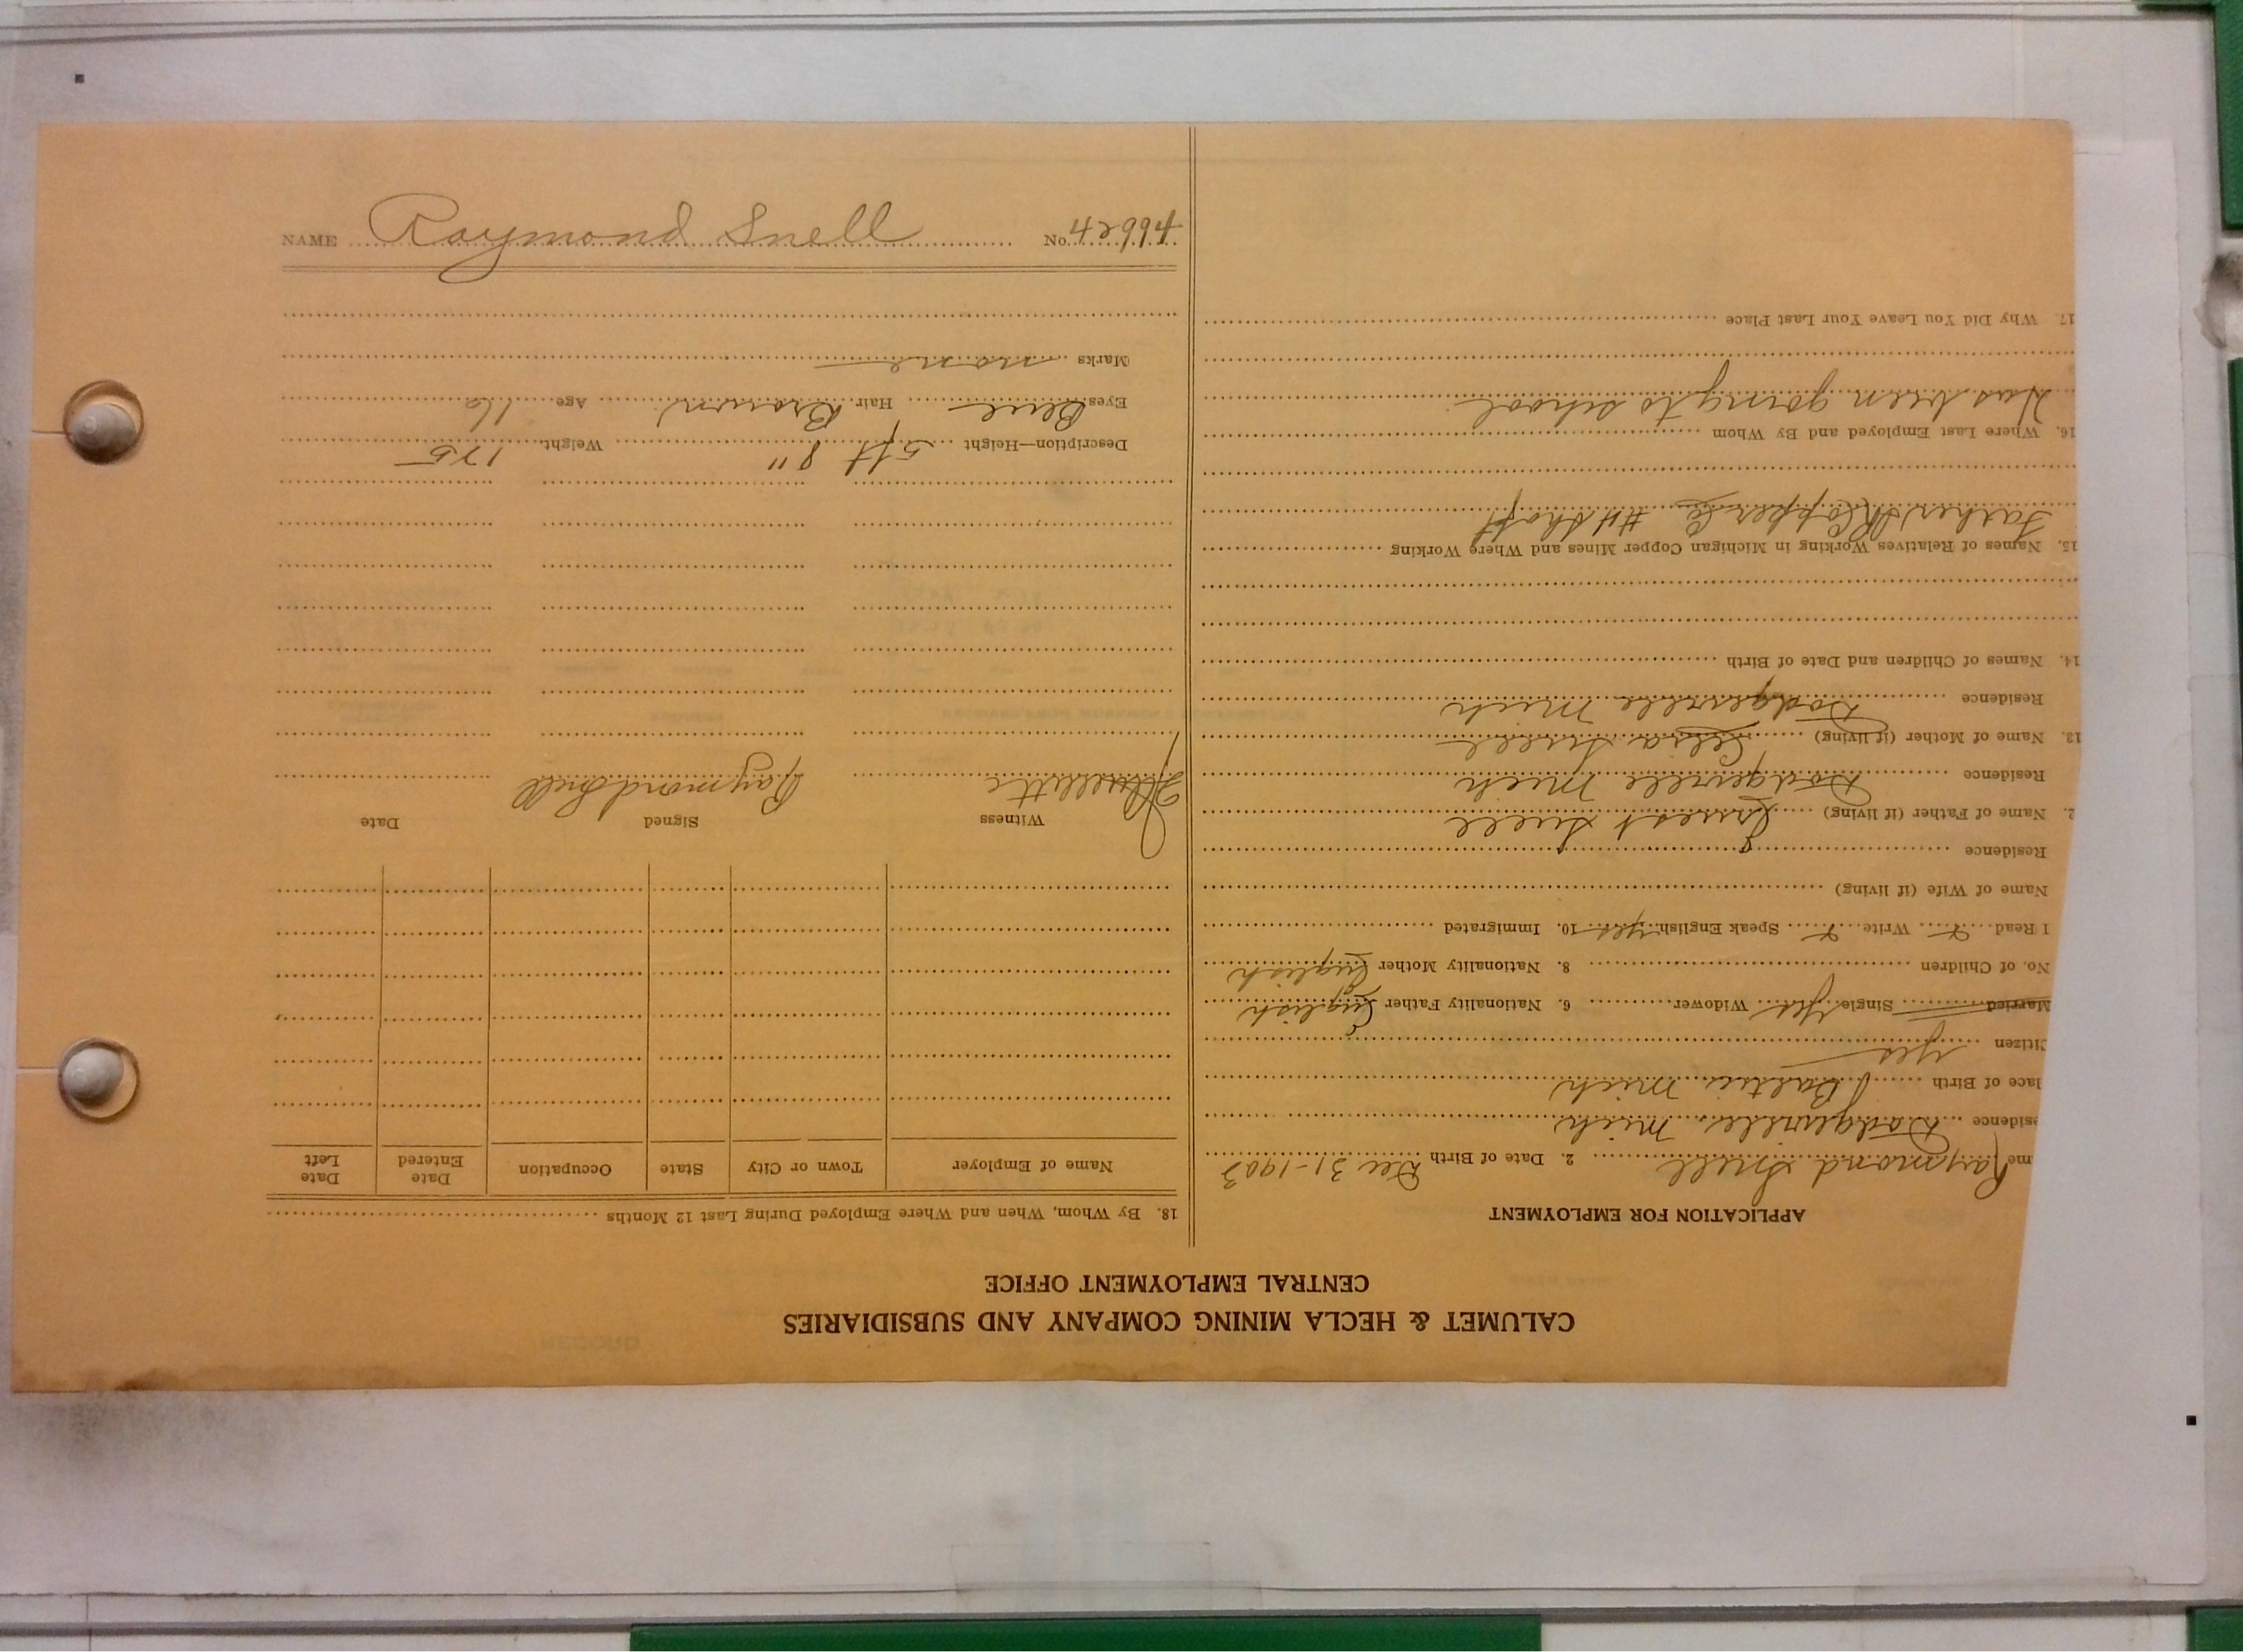 CALUMET & HECLA MINING COMPANY AND SUBSIDIARIES
CENTRAL EMPLOYMENT OFFICE
APPLICATION FOR EMPLOYMENT
me Raymond Snell 2. Date of Birth Dec 31-1903
esidence Dodgeville Mich
lace of Birth Baltic Mich
Citizen yes
Married Single yes Widower 6. Nationality Father English
No. of Children 8. Nationality Mother English
I Read Write Speak English yes 10. Immigrated
Name of Wife (if living)
Residence
2. Name of Father (if living) Ernest Snell
Residence Dodgeville Mich
13. Name of Mother (if living) Snell
Residence Dodgeville Mich
14. Names of Children and Date of Birth
15. Names of Relatives Working in Michigan Copper Mines and Where Working
Father Copper Co #4 Shaft
16. Where Last Employed and By Whom
Has been going to school
17. Why Did You Leave Your Last Place
18. By Whom, When and Where Employed During Last 12 Months
Name of Employer Town or City State Occupation Date Entered Date Left
Witness Signed Date
Raymond Snell
Description—Height 5 ft 8" Weight 175
Eyes Blue Hair Brown Age 16
Marks none
NAME Raymond Snell No. 42994